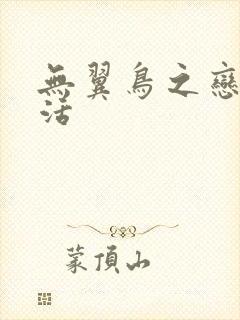 無翼鳥之戀
活
蒙頂山